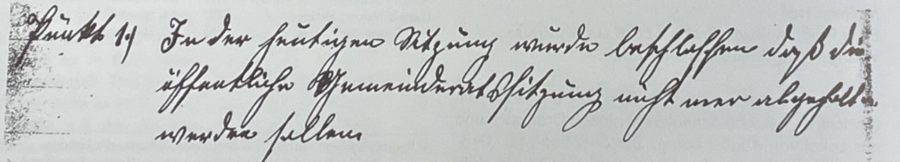 Punkt 1) In der heutigen Sitzung wurde beschlossen daß die
öffentliche Gemeinderatssitzung nicht mer abgehalten
werden sollen